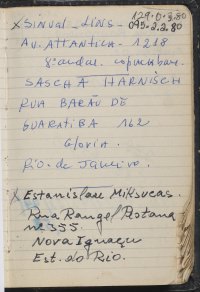 129.0.3.80
095.2.2.80
x Sinval - Lins -
Av. Atlantica - 1218
8º andar. copacabana.
SASCHA HARNISCH
RUA BARÃO DE
GUARATIBA 162
Gloria.
Rio. de Janeiro.
x Estanislau Miksucas.
Rua Rangel Pestana
nº 355
Nova Iguaçu
Est. do Rio.